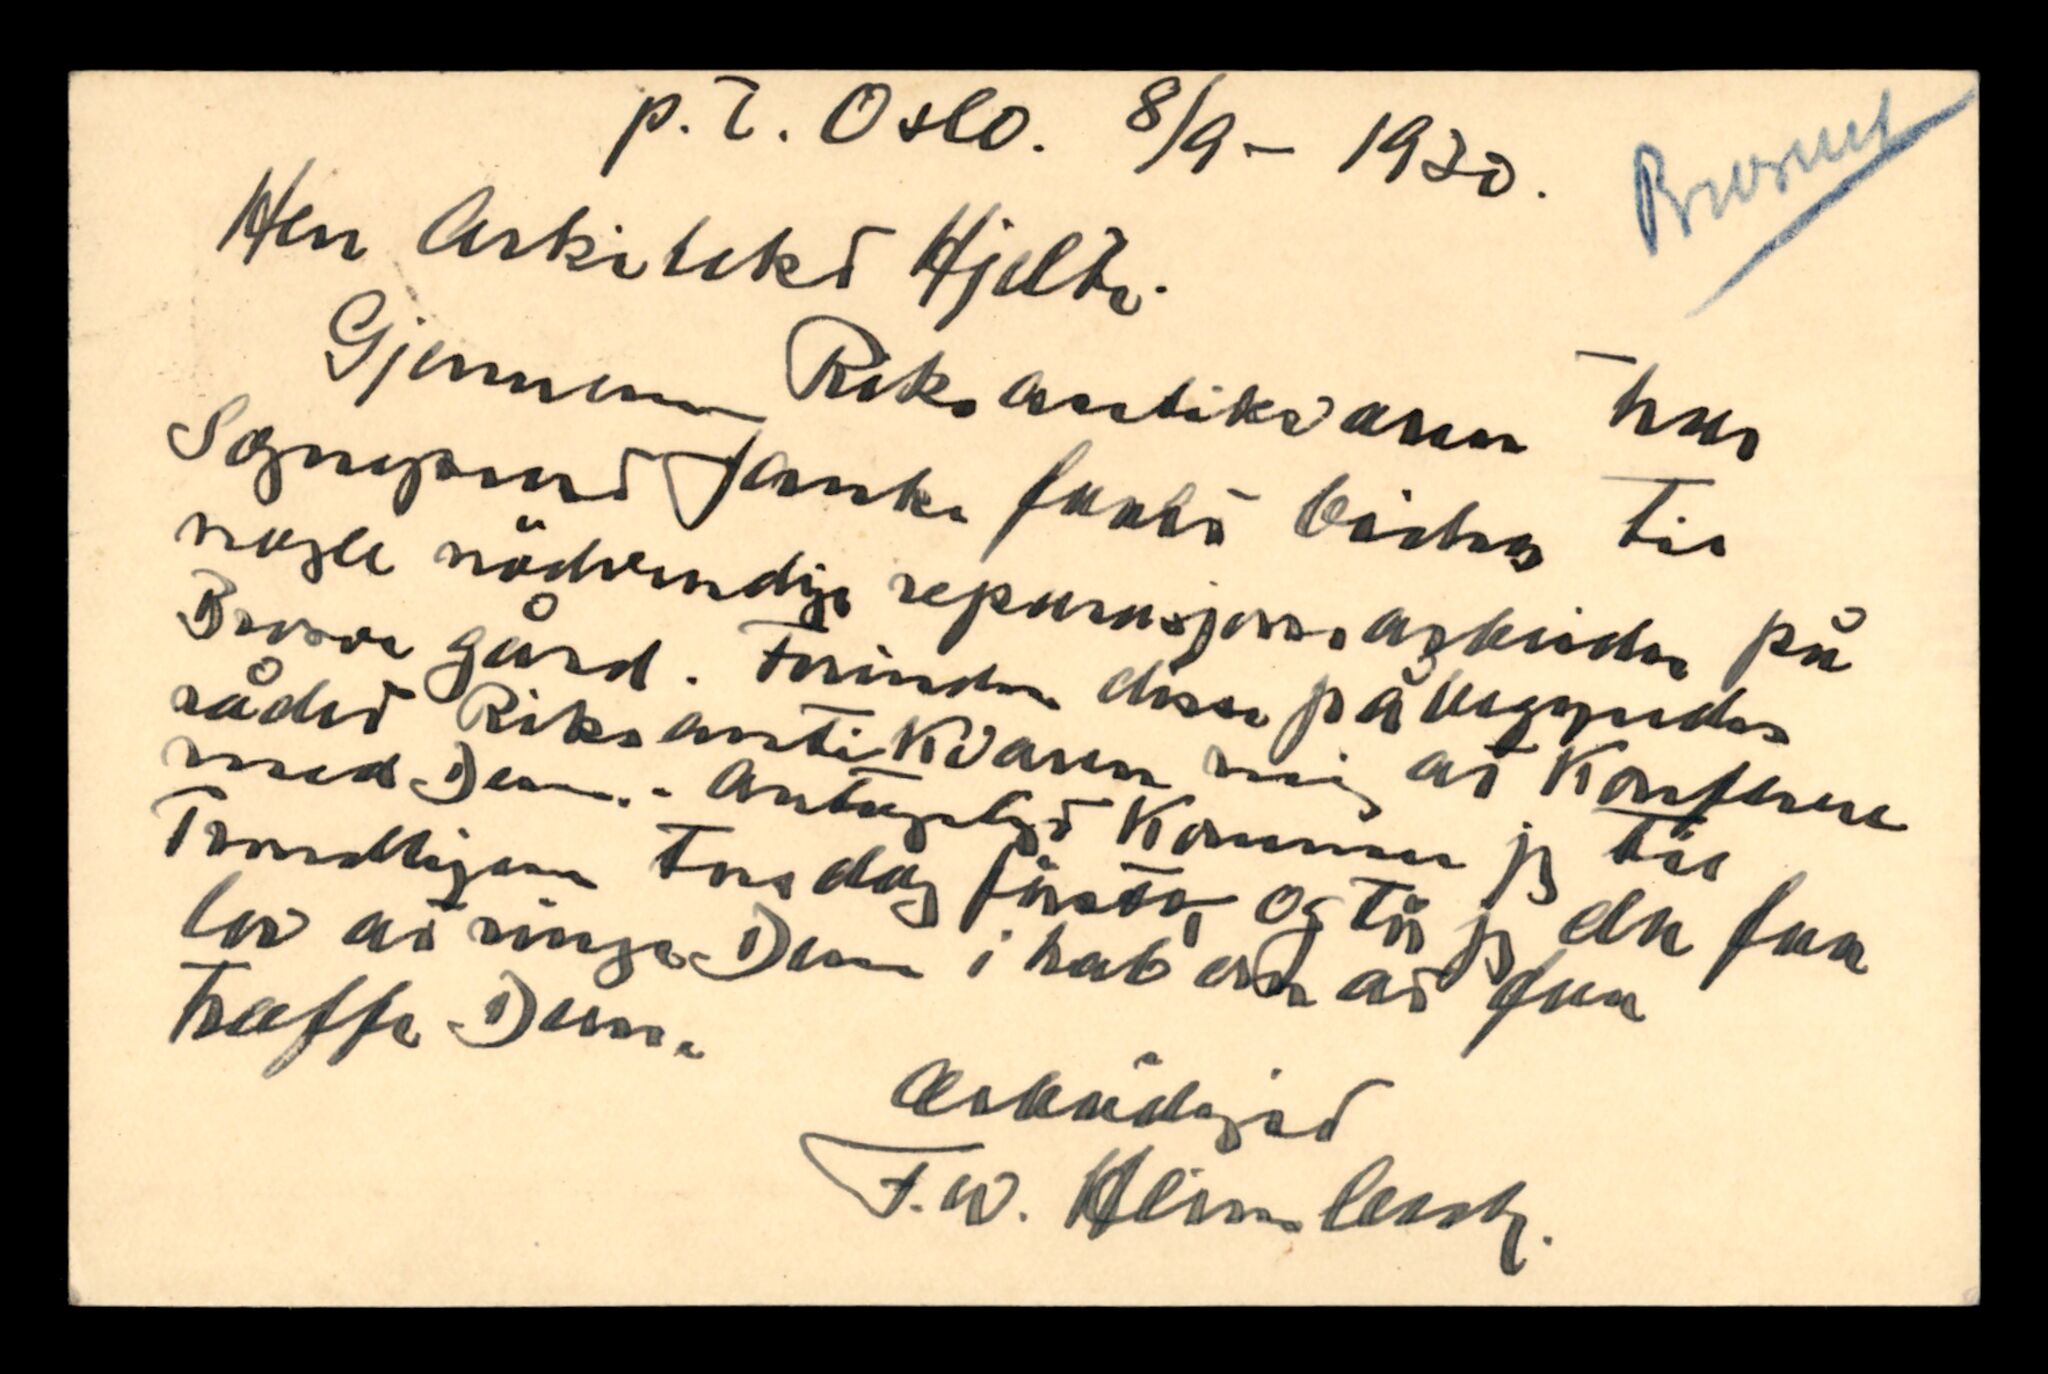 p.t. Oslo. 8/9 – 1930.
Herr Arkitekt Hjelte.
Gjennem Riksantikvaren har
Sogneprest faatt bidrag til
nogle nödvendige reparasjonsarbeider på
gård. Forinden disse påbegyndes
rådet Riksantikvaren mig at konferere
med Dem. - Antagelgt kommer jg til
Trondhjem Torsdag förstk, og tör jg da faa
lov at ringe Dem i haab om at faa
træffe Dem.
Ærbödigst
F. W.